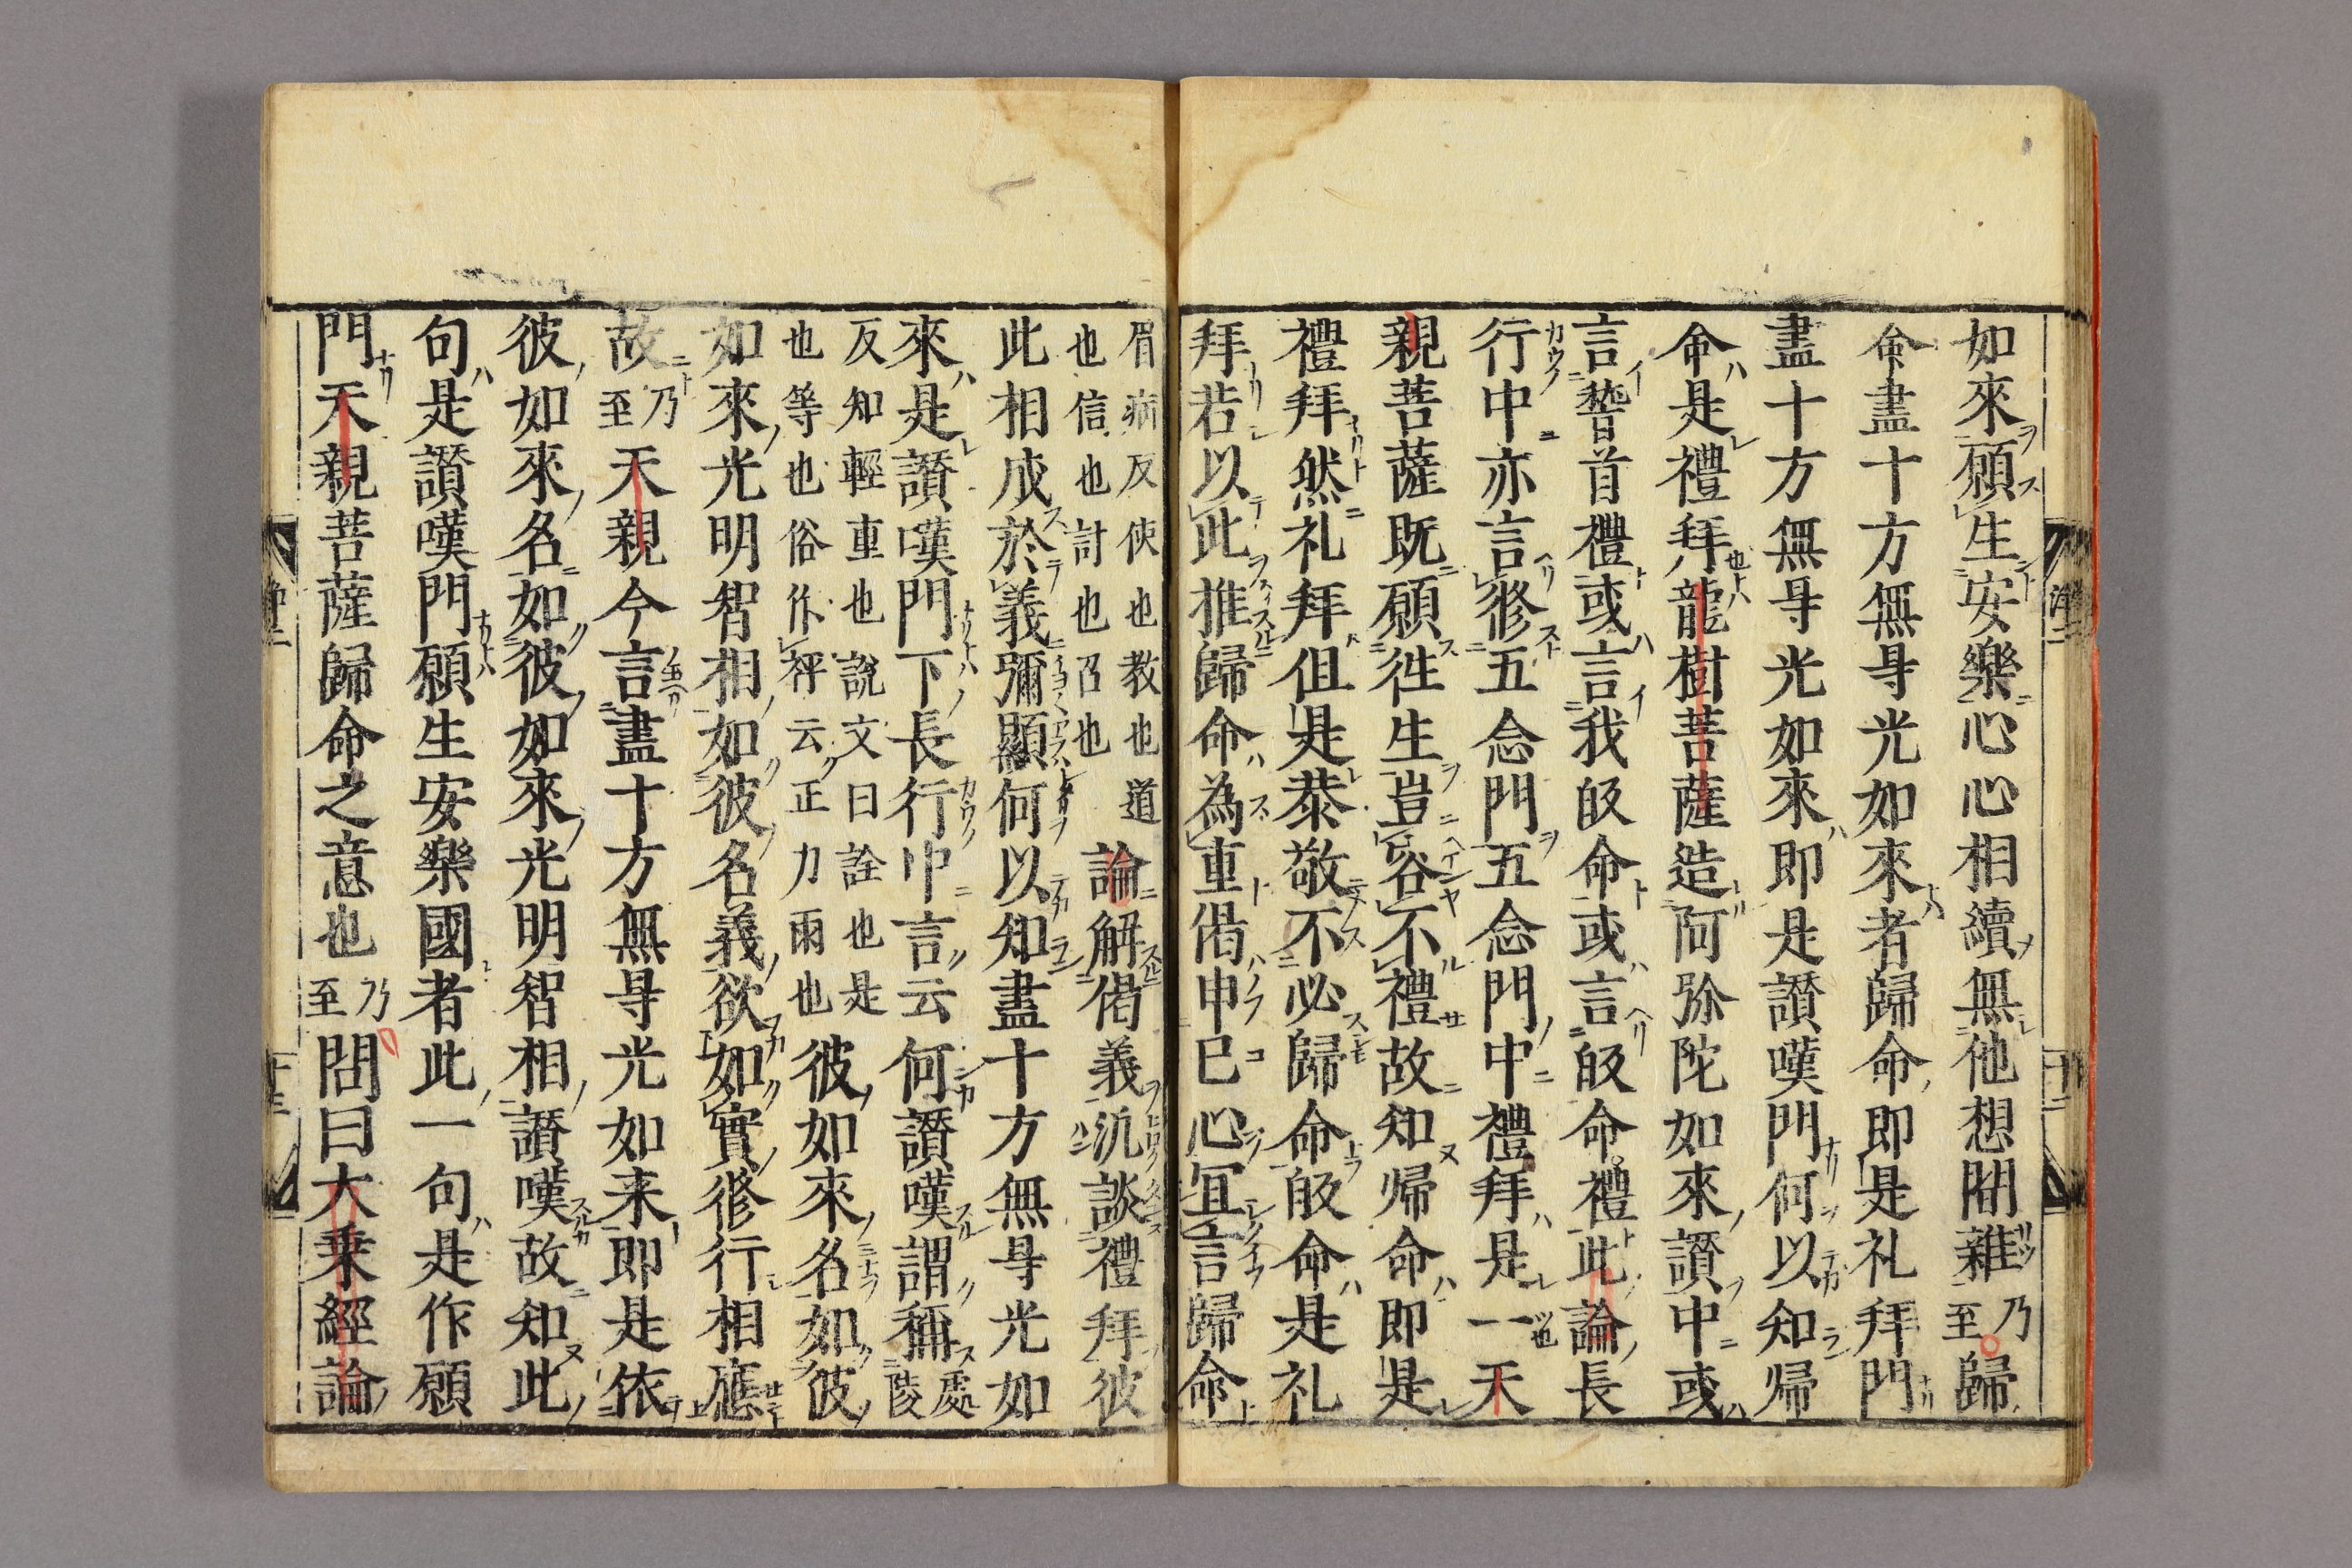 如來願生安樂心心相續無他想間雜乃至歸
命盡十方無㝵光如來者歸命即是礼拜門
盡十方無㝵光如來即是讃嘆門何以知帰
命是禮拜龍樹菩薩造阿弥陀如來讃中或
言稽首禮或言我皈命或言皈命禮此論長
行中亦言修五念門五念門中禮拜是一天
親菩薩既願往生豈容不禮故知帰命即是
禮拜然礼拜但是恭敬不必歸命皈命是礼
拜若以此推歸命為重偈申已心冝言歸命
眉病反使也教也道
也信也討也召也
論解偈義汎談禮拜彼
此相成於義彌顯何以知盡十方無㝵光如
來是讃嘆門下長行中言云何讃嘆謂稱處陵
反知輕重也說文曰詮也是
也等也俗作秤云正力兩也
彼如來名如彼
如來光明智相如彼名義欲如實修行相應
故乃至天親今言盡十方無㝵光如来即是依
彼如來名如彼如來光明智相讃嘆故知此
句是讃嘆門願生安樂國者此一句是作願
門天親菩薩歸命之意也乃至問曰大乗經論